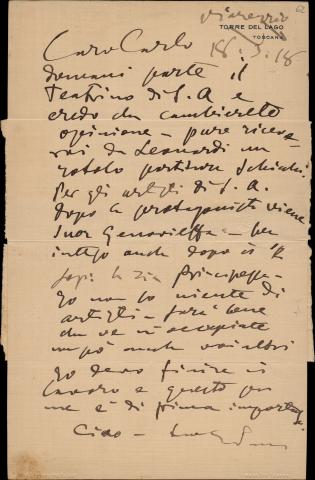 Viareggio
TORRE DEL LAGO
TOSCANA
18. 18
Caro Carlo
domani parte il
Teatrino di S. A e
credo che cambierete
opinione - pure riceve-
rai da Leonardi un
rotolo partitura Schicchi.
Per gli artisti di S. A.
dopo la protagonista viene
Suor Genovieffa - per
inteso anche dopo
la zia Principessa -
Io non so niente di
artisti - farà bene
che ve ne occupiate
un pò anche voialtri
Io devo finire il
lavoro e questo per
me è di prima importanza.
Ciao -